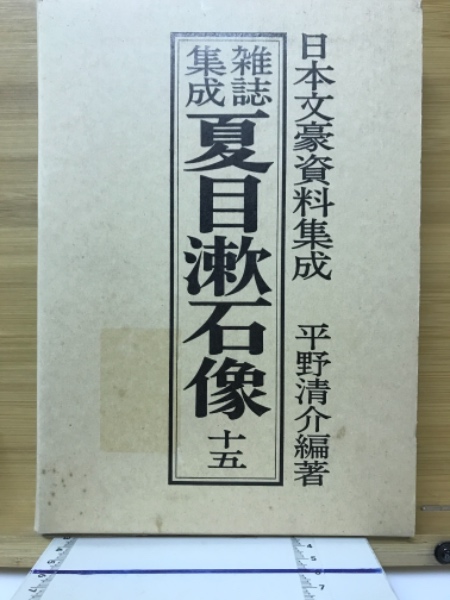 日本文豪資料集成 平野清介編著
雑誌集成
夏目漱石像 十五